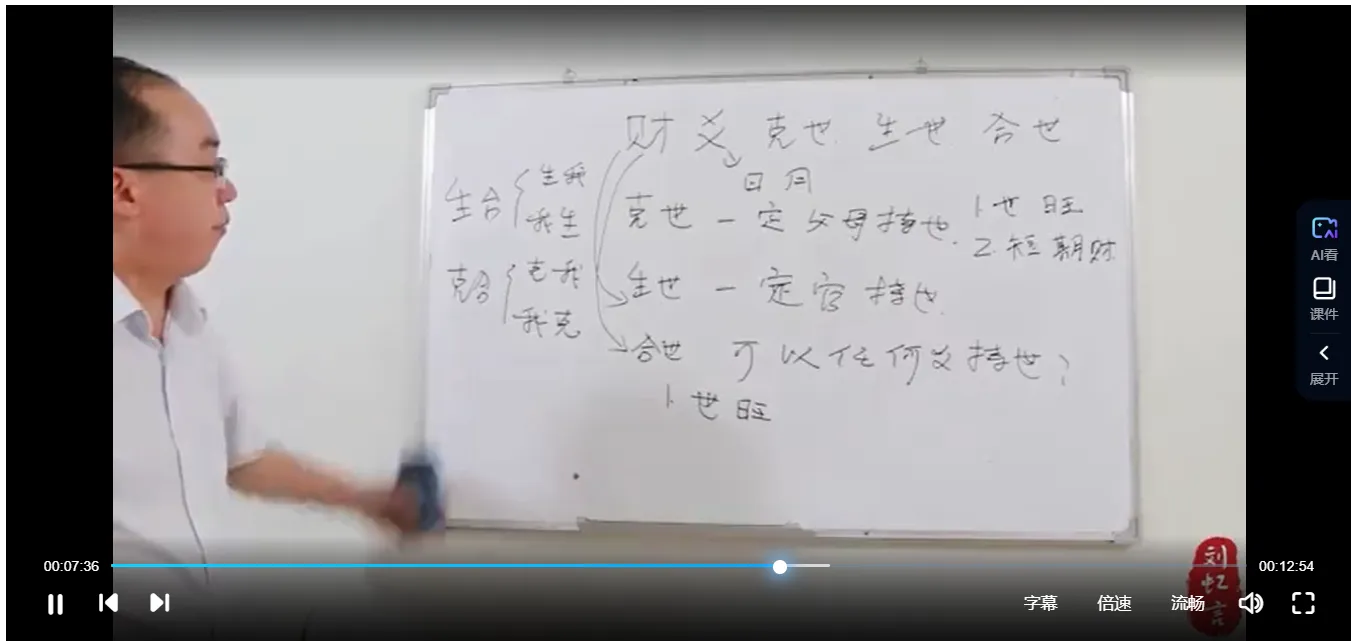 财爻 克世 生世 合世
日月
生合 { 生我
我生
克世 一定父母持世.
1 世旺
2. 短期财
克合 { 克我
我克
生世 一定官持世.
合世 可以任何爻持世?
1 世旺
AI看
课件
展开
刘虹言
00:07:36
00:12:54
字幕 倍速 流畅